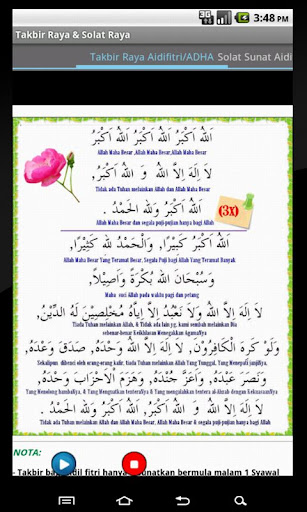 3G 3:48 PM
Takbir Raya & Solat Raya
Takbir Raya Aidifitri/ADHA Solat Sunat Aidi
اَللهُ اَكْبَرُ اَللهُ اَكْبَرُ اَللهُ اَكْبَرُ
Allah Maha Besar ,Allah Maha Besar,Allah Maha Besar
لَا إِلَهَ إِلاَّ اللهُ وَ اللهُ اَكْبَرُ,
Tidak ada Tuhan melainkan Allah dan Allah Maha Besar
اَللهُ اَكْبَرُ وَللهِ الْحَمْدُ . (3x)
Allah Maha Besar dan segala puji-pujian hanya bagi Allah
اَللهُ اَكْبَرُ كَبِيْرًا, وَالْحَمْدُ لله كَثِيْرًا,
Allah Maha Besar Yang Teramat Besar, Segala Puji bagi Allah Yang Teramat Banyak
وَسُبْحَانَ اللهِ بُكْرَةً وَاَصِيْلاً,
Maha suci Allah pada waktu pagi dan petang
لَا إِلَهَ إِلاَّ اللهُ وَلاَ نَعْبُدُ إِلاَّ إِيَّاهُ مُخْلِصِيْنَ لَهُ الدِّيْنَ,
Tiada Tuhan melainkan Allah, & Tidak ada lain yg. kami sembah melainkan Dia
sebenar-benar Keikhlasan Menegakkan AgamaNya
وَلَوْ كَرِهَ الْكَافِرُوْنَ, لَا إِلَهَ إِلاَّ اللهُ وَحْدَهُ, صَدَقَ وَعْدَهُ,
Sekalipun dibenci oleh orang-orang kafir, tiada Tuhan Melainkan Allah Yang Tunggal, Yang Menepati janjiNya,
وَنَصَرَ عَبْدَهُ, وَاَعَزَّ جُنْدَهُ, وَهَزَمَ الْاَحْزَابَ وَحْدَهُ
Yang Menolong hambaNya, & Yang Menguatkan tenteraNya & Yang mengalahkan tentera al-Ahzab dengan KeEsaanNya
لَا إِلَهَ إِلاَّ اللهُ وَاللهُ اَكْبَرُ اَللهُ اَكْبَرُ وَللهِ الْحَمْدُ .
Tidak ada Tuhan melainkan Allah dan Allah Maha Besar, Allah Maha Besar & segala puji-pujian hanya bagi Allah
NOTA:
- Takbir
fitri hanya
unatkan bermula malam 1 Syawal